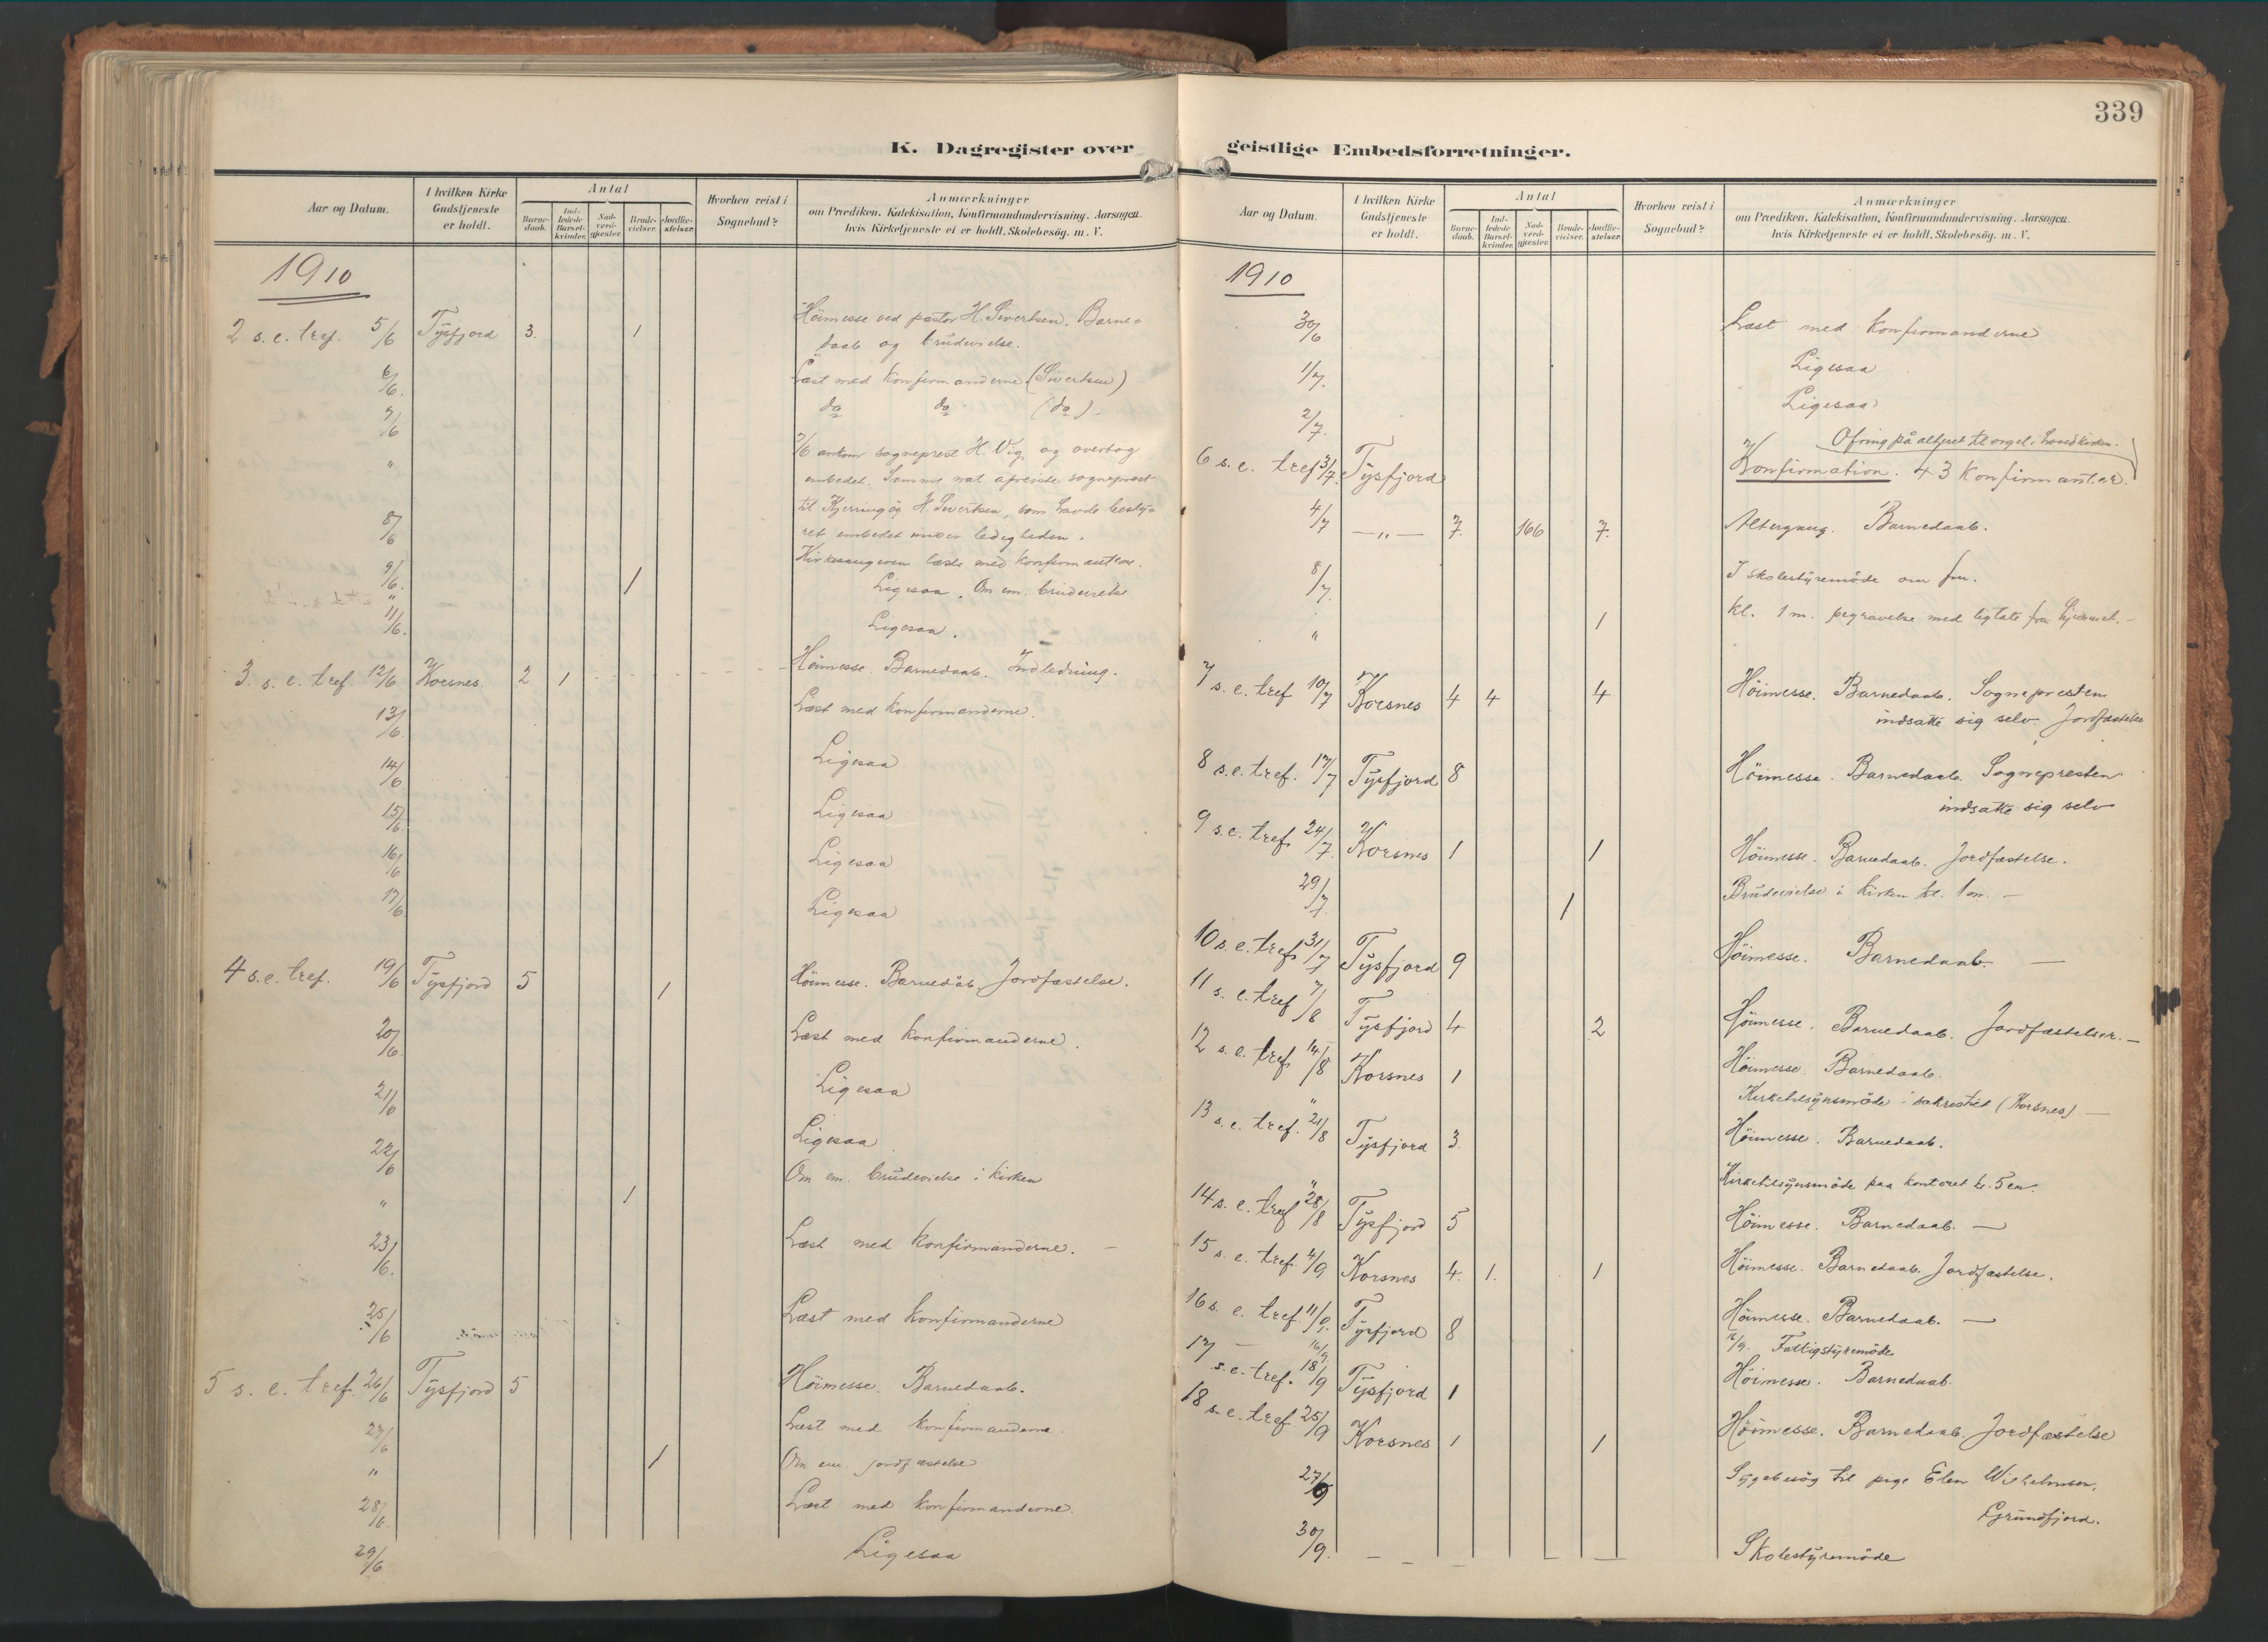 339
K. Dagregister over geistlige Embedsforretninger.
Aar og Datum.
I hvilken Kirke Gudstjeneste er holdt.
Antal
Barne-daab.
Ind-ledede Barsel-kvinder.
Nad-verd-gjæster.
Brude-vielser.
Jordfæ-stelser.
Hvorhen reist i Sognebud?
Anmærkninger
om Prædiken, Katekisation, Konfirmandundervisning. Aarsagen, hvis Kirketjeneste ei er holdt, Skolebesög. m. V.
1910
2 s. e. tref. 5/6 Tysfjord 3. 1 Höimesse ved pastor H. Sivertsen. Barne-
daab og brudevielse.
6/6. Læst med konfirmanderne (Sivertsen)
7/6 do do (do).
" 7/6 ankom sogneprest H. Vig og overtog
embedet. Samme nat afreiste sogneprest
til Kjerringöy H. Sivertsen, som havde besty-
8/6 ret embedet under ledigheden.
Kirkesangeren læste med konfirmanterne.
9/6. 1 Ligesaa. Om em. brudevielse
"
11/6. Ligesaa.
3. s. e. tref. 12/6 Korsnes. 2 1 Höimesse. Barnedaab. Indledning.
13/6 Læst med konfirmanderne.
14/6 Ligesaa
15/6. Ligesaa
16/6 Ligesaa
17/6 Ligesaa
4 s. e. tref. 19/6 Tysfjord 5 1 Höimesse. Barnedåb. Jordfæstelse.
20/6. Læst med konfirmanderne.
21/6 Ligesaa
22/6 Ligesaa
" 1 Om em. brudevielse i kirken
23/6. Læst med konfirmanderne. —
25/6 Læst med konfirmanderne
5 s. e. tref. 26/6 Tysfjord 5 Höimesse. Barnedaab.
27/6 Læst med konfirmanderne.
" 1 Om em. jordfæstelse
28/6. Læst med konfirmanderne.
29/6 Ligesaa
Aar og Datum.
I hvilken Kirke Gudstjeneste er holdt.
Antal
Barne-daab.
Ind-ledede Barsel-kvinder.
Nad-verd-gjæster.
Brude-vielser.
Jordfæ-stelser.
Hvorhen reist i Sognebud?
Anmærkninger
om Prædiken, Katekisation, Konfirmandundervisning. Aarsagen, hvis Kirketjeneste ei er holdt, Skolebesög. m. V.
1910
30/6 Læst med konfirmanderne
1/7. Ligesaa
2/7. Ligesaa
Ofring på alteret til orgel i hovedkirken.
6 s. e. tref 3/7. Tysfjord Konfirmation. 43 konfirmanter.
4/7 — " — 7. 166 7. Altergang. Barnedaab.
8/7. I skolestyremöde om fm.
" 1 kl. 1 m. begravelse med ligtale fra hjemmet. —
7 s. e. tref 10/7 Korsnes 4 4 4 Höimesse. Barnedaab. Sognepresten
indsatte sig selv. Jordfæstelse
8 s. e. tref. 17/7 Tysfjord 8 Höimesse. Barnedaab. Sognepresten
indsatte sig selv
9 s. e. tref 24/7. Korsnes 1 1 Höimesse. Barnedaab. Jordfæstelse.
29/7 1 Brudevielse i kirken kl. 1 m. —
10 s. e. tref 31/7 Tysfjord 9 Höimesse. Barnedaab. —
11 s. e. tref 7/8 Tysfjord 4 2 Höimesse. Barnedaab. Jordfæstelser. —
12 s. e. tref 14/8 Korsnes 1 Höimesse. Barnedaab.
" Kirketilsynsmöde i sakristiet (Korsnes) —
13 s. e. tref. 21/8 Tysfjord 3 Höimesse. Barnedaab.
" Kirketilsynsmöde paa kontoret kl. 5 em.
14 s. e. tref 28/8 Tysfjord 5 Höimesse. Barnedaab. —
15 s. e. tref. 4/9 Korsnes 4. 1. 1 Höimesse. Barnedaab. Jordfæstelse.
16 s. e. tref. 11/9. Tysfjord 8 Höimesse. Barnedaab. —
16/9. 16/9. Fattigstyremöde
17 s. e. tref. 18/9 Tysfjord 1 Höimesse. Barnedaab.
18 s. e. tref 25/9 Korsnes 1 1 Höimesse. Barnedaab. Jordfæstelse
27/9 Sygebesög til pige Elen Wilhelmsen,
Grundfjord.
30/9. Skolestyremöde